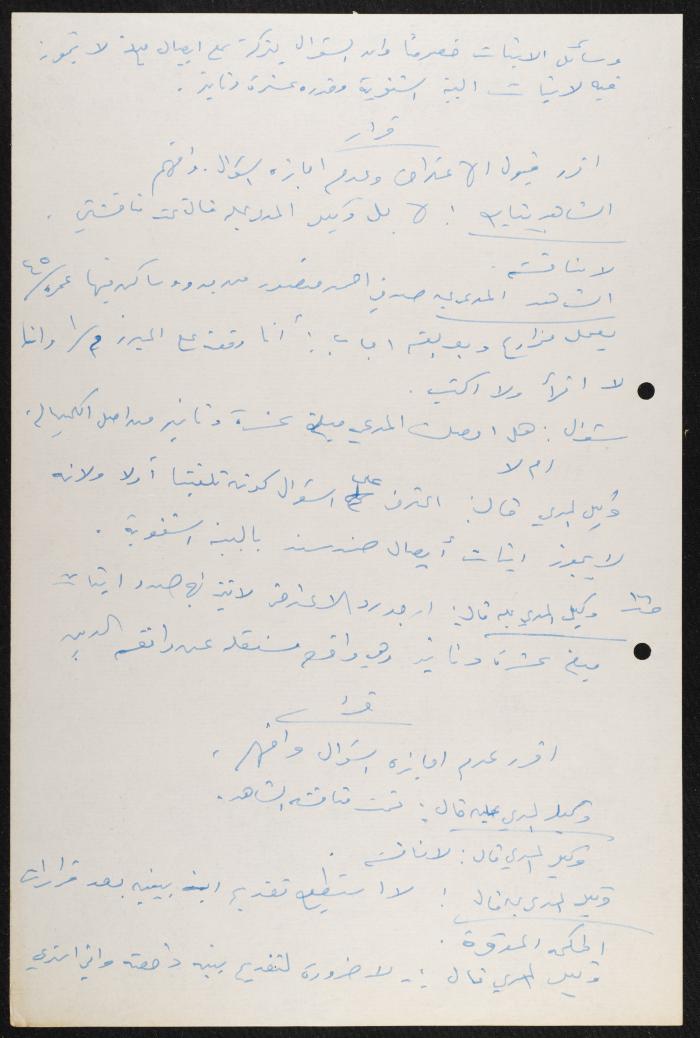 وسائل الاثبات خصوصًا وان السؤال يتركز على ايصال مبلغ لا يجوز
فيه لاثبات البينة الشفوية وقدره عشرة دنانير .
قرار
اقرر قبول الاعتراض وعدم اجازة السؤال . وافهم
الشاهد : لا بل وكيل المدعى عليه قال تمت مناقشتي .
لا مناقشة .
الشاهد المدعو احمد منصور من وساكن فيها عمره ٤٥
يعمل مزارع وبعد اجاب : أنا وقعت على المبرز م/١ وانا
لا اقرأ ولا اكتب .
سؤال : هل اوصلت المدعي مبلغ عشرة دنانير من اصل الكمبيالة
ام لا
وكيل المدعي قال : اعترض على السؤال كونه تلقينا أولا ولانه
لا يجوز اثبات أيصال ضد سند بالبينة الشفوية .
وكيل المدعى عليه قال : ارجو رد الاعتراض لانني في صدد اثبات
مبلغ عشرة دنانير وهي واقعة مستقلة عن واقعة الدين
قرار
اقرر عدم اجازة السؤال وافهم .
وكيل المدعى عليه قال : تمت مناقشة الشاهد .
وكيل المدعي قال : لا مناقشة .
وكيل المدعى عليه قال : لا استطيع تقديم بينه بعد قرارات
المحكمة الموقرة .
وكيل المدعي قال :- لا ضرورة لتقديم بينه داحضة وانني ابتدي